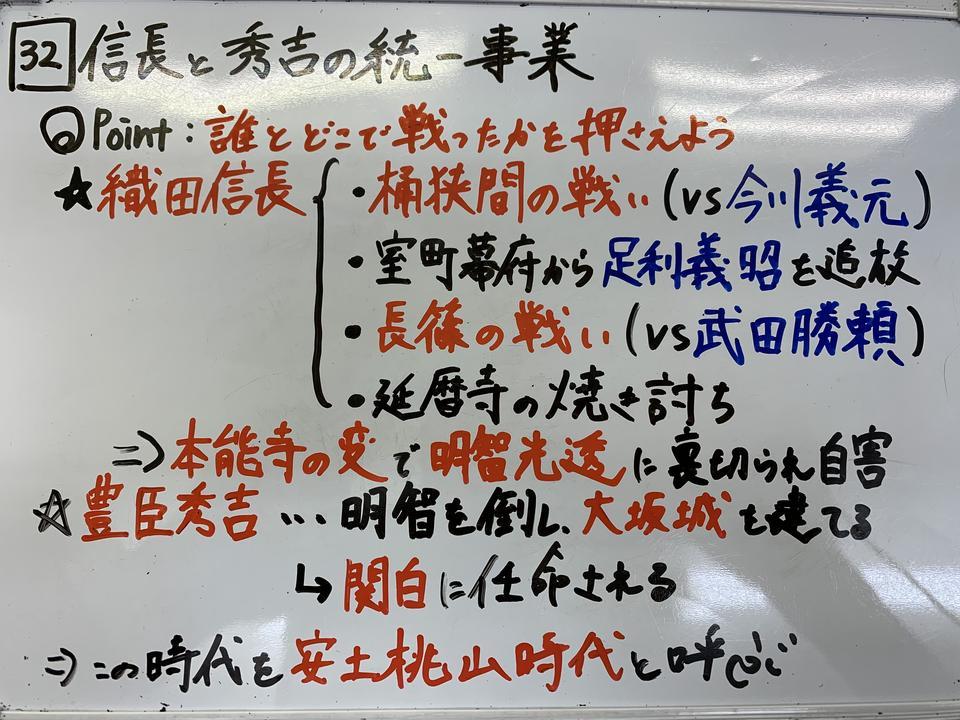 32 信長と秀吉の統一事業
◎Point:誰とどこで戦ったかを押さえよう
☆織田信長 ・桶狭間の戦い(vs今川義元)
・室町幕府から足利義昭を追放
・長篠の戦い(vs武田勝頼)
・延暦寺の焼き討ち
⇒本能寺の変で明智光透に裏切られ自害
☆豊臣秀吉…明智を倒し、大坂城を建てる
↳関白に任命される
⇒この時代を安土桃山時代と呼ぶ